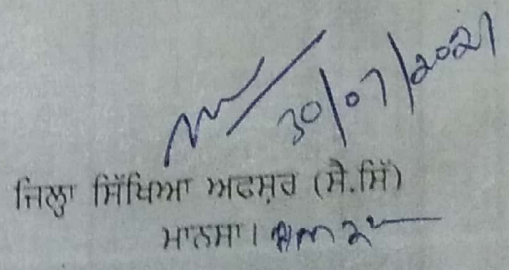 30/07/2021
ਜਿਲ੍ਹਾ ਸਿੱਖਿਆ ਅਫਸ਼ਰ (ਸੈ.ਸਿੱ)
ਮਾਨਸਾ।